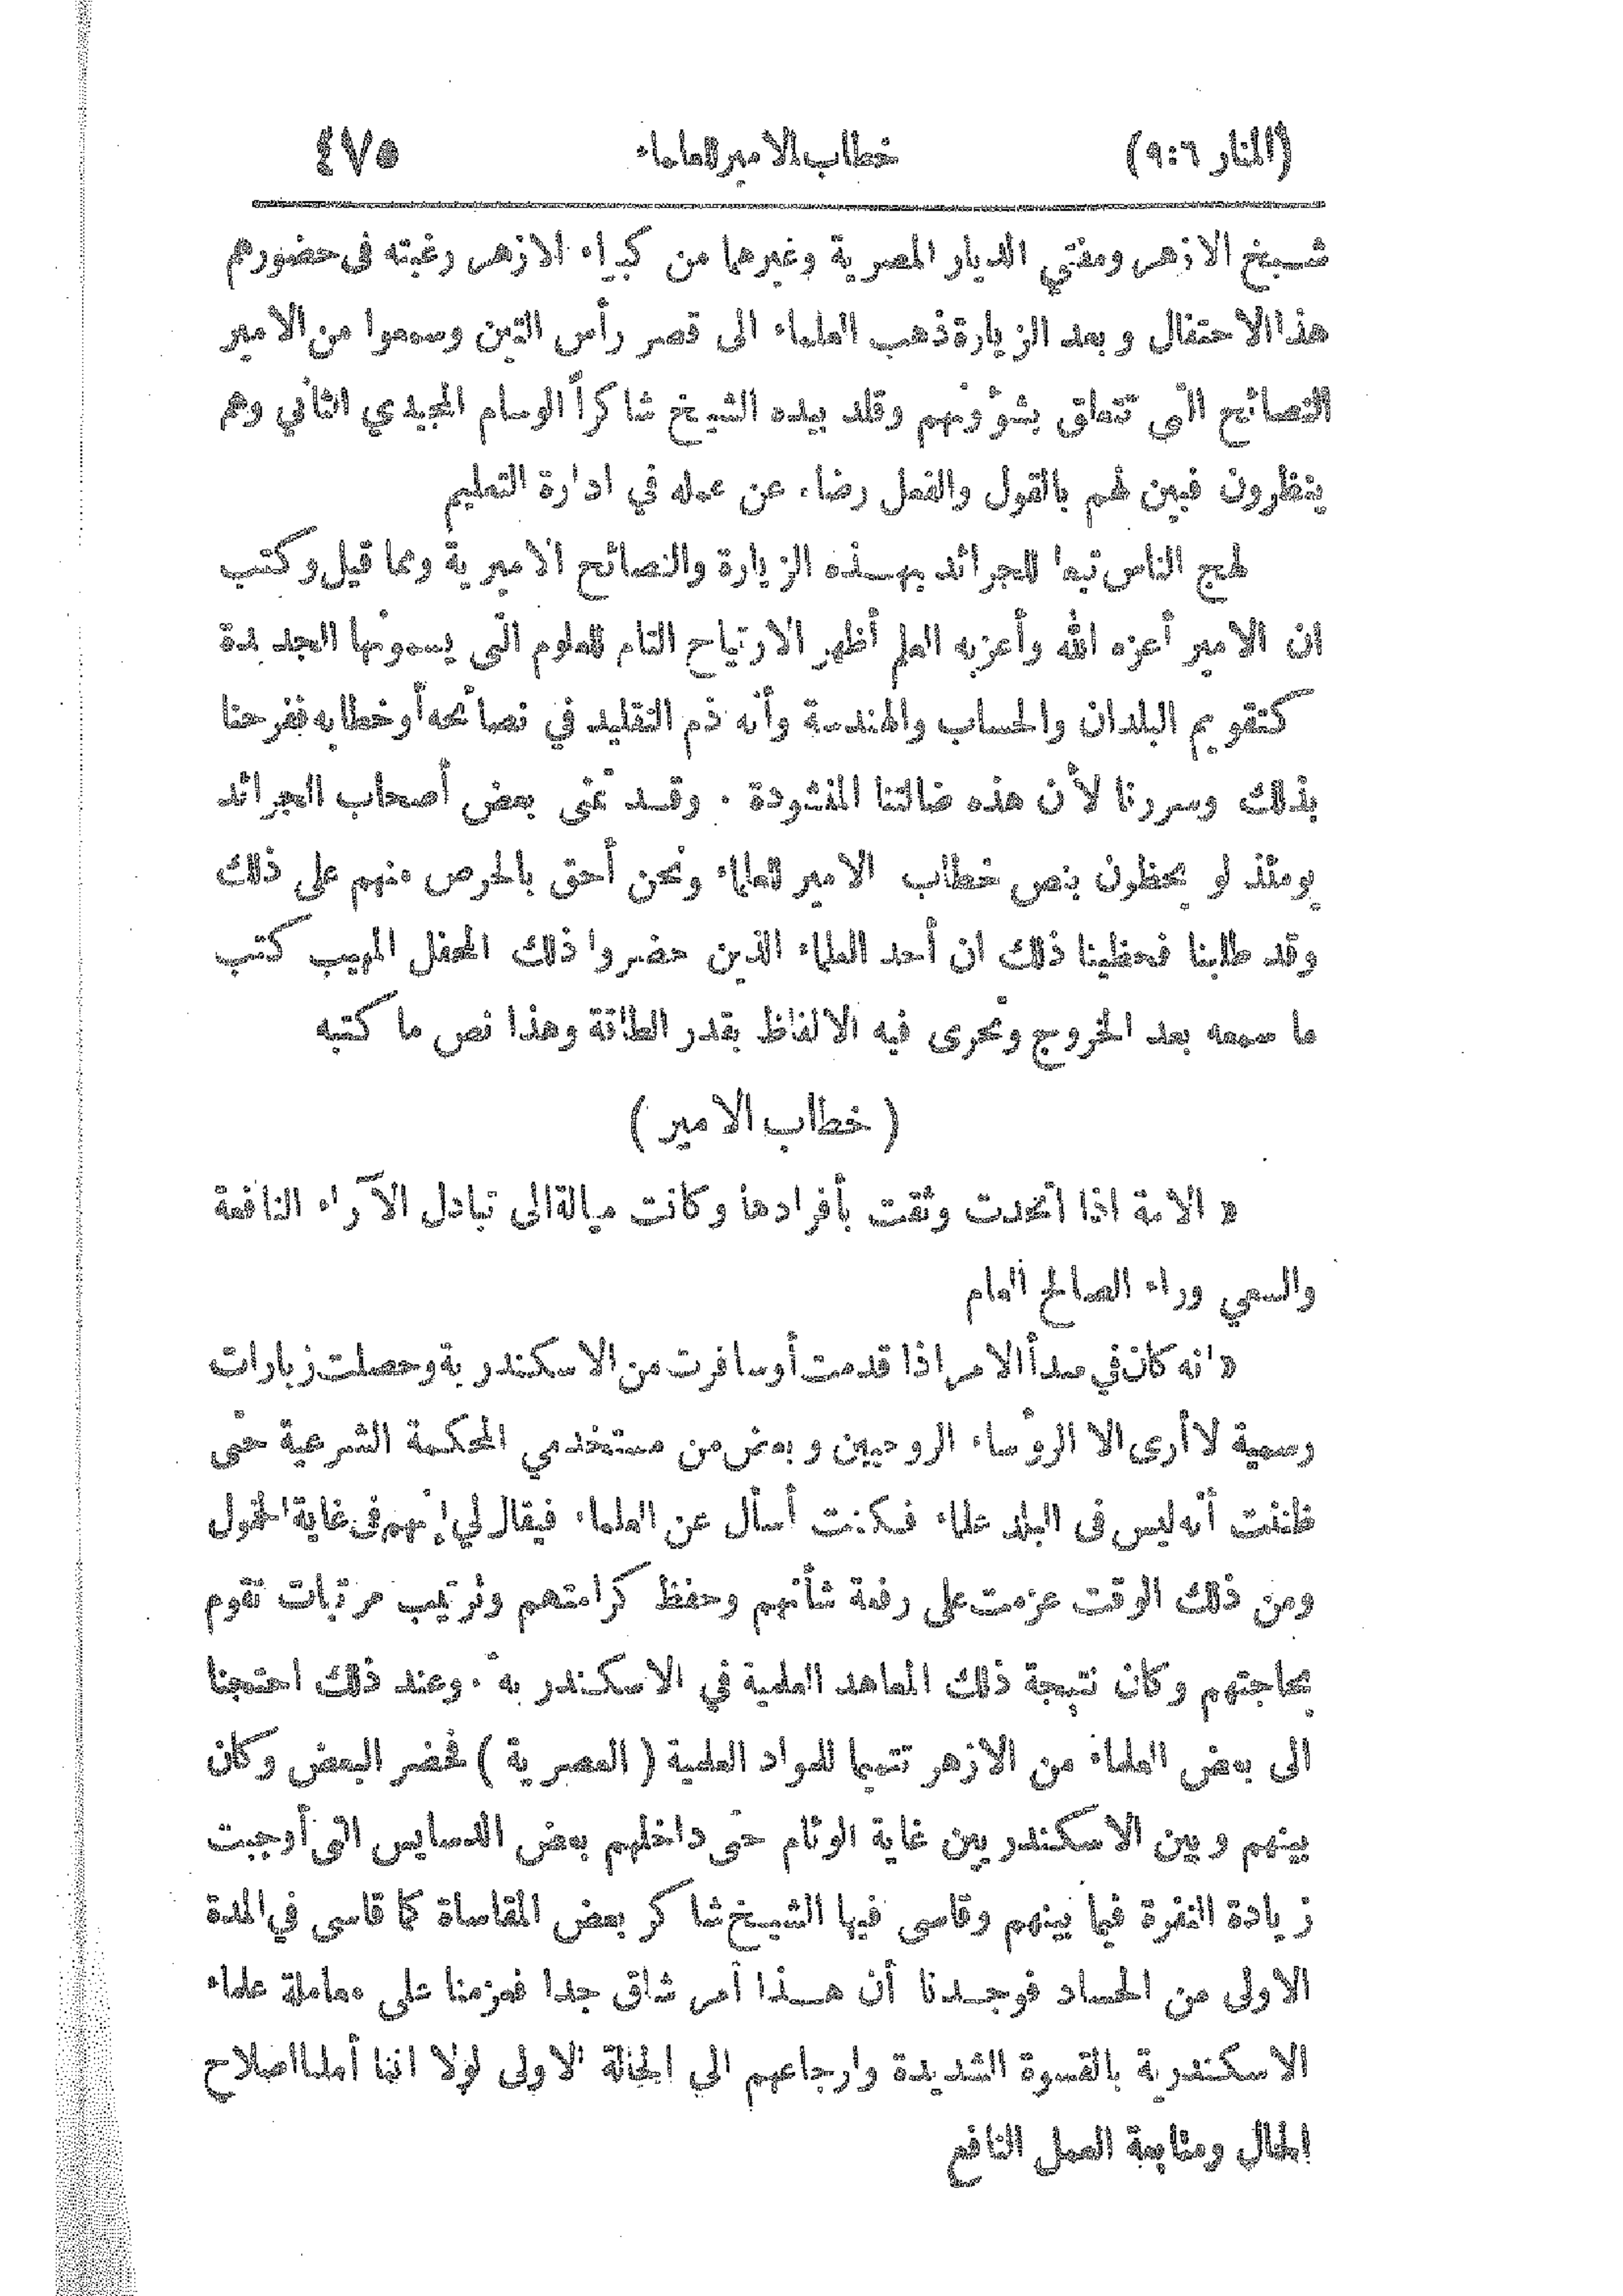 (المنار ٩:٦) خطاب الامير للعلماء ٤٧٥
شيخ الازهر ومفتي الديار المصرية وغيرهما من كبراء الازهر رغبته فى حضورهم
هذا الاحتفال وبعد الزيارة ذهب العلماء الى قصر رأس التين وسمعوا من الامير
النصائح التى تتعلق بشؤونهم وقلد بيده الشيخ شاكراً الوسام المجيدي الثاني وهم
ينظرون فبين لهم بالقول والفعل رضاء عن عمله في ادارة التعليم
لهج الناس تبعا للجرائد بهذه الزيارة والنصائح الاميرية ومما قيل وكتب
ان الامير أعزه الله وأعز به العلم أظهر الارتياح التام للعلوم التى يسمونها الجديدة
كتقويم البلدان والحساب والهندسة وأنه ذم التقليد في نصائحه أو خطابه ففرحنا
بذلك وسررنا لأن هذه ضالتنا المنشودة . وقد تمنى بعض أصحاب الجرائد
يومئذ لو يحظون بنص خطاب الامير للعلماء ونحن أحق بالحرص منهم على ذلك
وقد طلبنا فحظينا ذلك ان أحد العلماء الذين حضروا ذلك المحفل المهيب كتب
ما سمعه بعد الخروج وتحرى فيه الالفاظ بقدر الطاقة وهذا نص ما كتبه
( خطاب الامير )
« الامة اذا اتحدت وثقت بأفرادها وكانت ميالة الى تبادل الآراء النافعة
والسعي وراء الصالح العام
« انه كان في مبدأ الامر اذا قدمت أو سافرت من الاسكندرية وحصلت زيارات
رسمية لا أرى الا الرؤساء الروحيين وبعض من مستخدمي المحكمة الشرعية حتى
ظننت أنه ليس فى البلد علماء فكنت أسأل عن العلماء فيقال لي إنهم فى غاية الخمول
ومن ذلك الوقت عزمت على رفعة شأنهم وحفظ كرامتهم وترتيب مرتبات تقوم
بحاجتهم وكان نتيجة ذلك المعاهد العلمية في الاسكندرية . وعند ذلك احتجنا
الى بعض العلماء من الازهر تتميما للمواد العلمية ( العصرية ) فحضر البعض وكان
بينهم وبين الاسكندريين غاية الوئام حتى داخلهم بعض الدسايس التى أوجبت
زيادة النفرة فيما بينهم وقاسى فيها الشيخ شاكر بعض المقاساة كما قاسى في المدة
الاولى من الحساد فوجدنا أن هذا أمر شاق جدا فعزمنا على معاملة علماء
الاسكندرية بالقسوة الشديدة وارجاعهم الي الحالة الاولى لولا اننا أملنا اصلاح
الحال ومتابعة العمل النافع